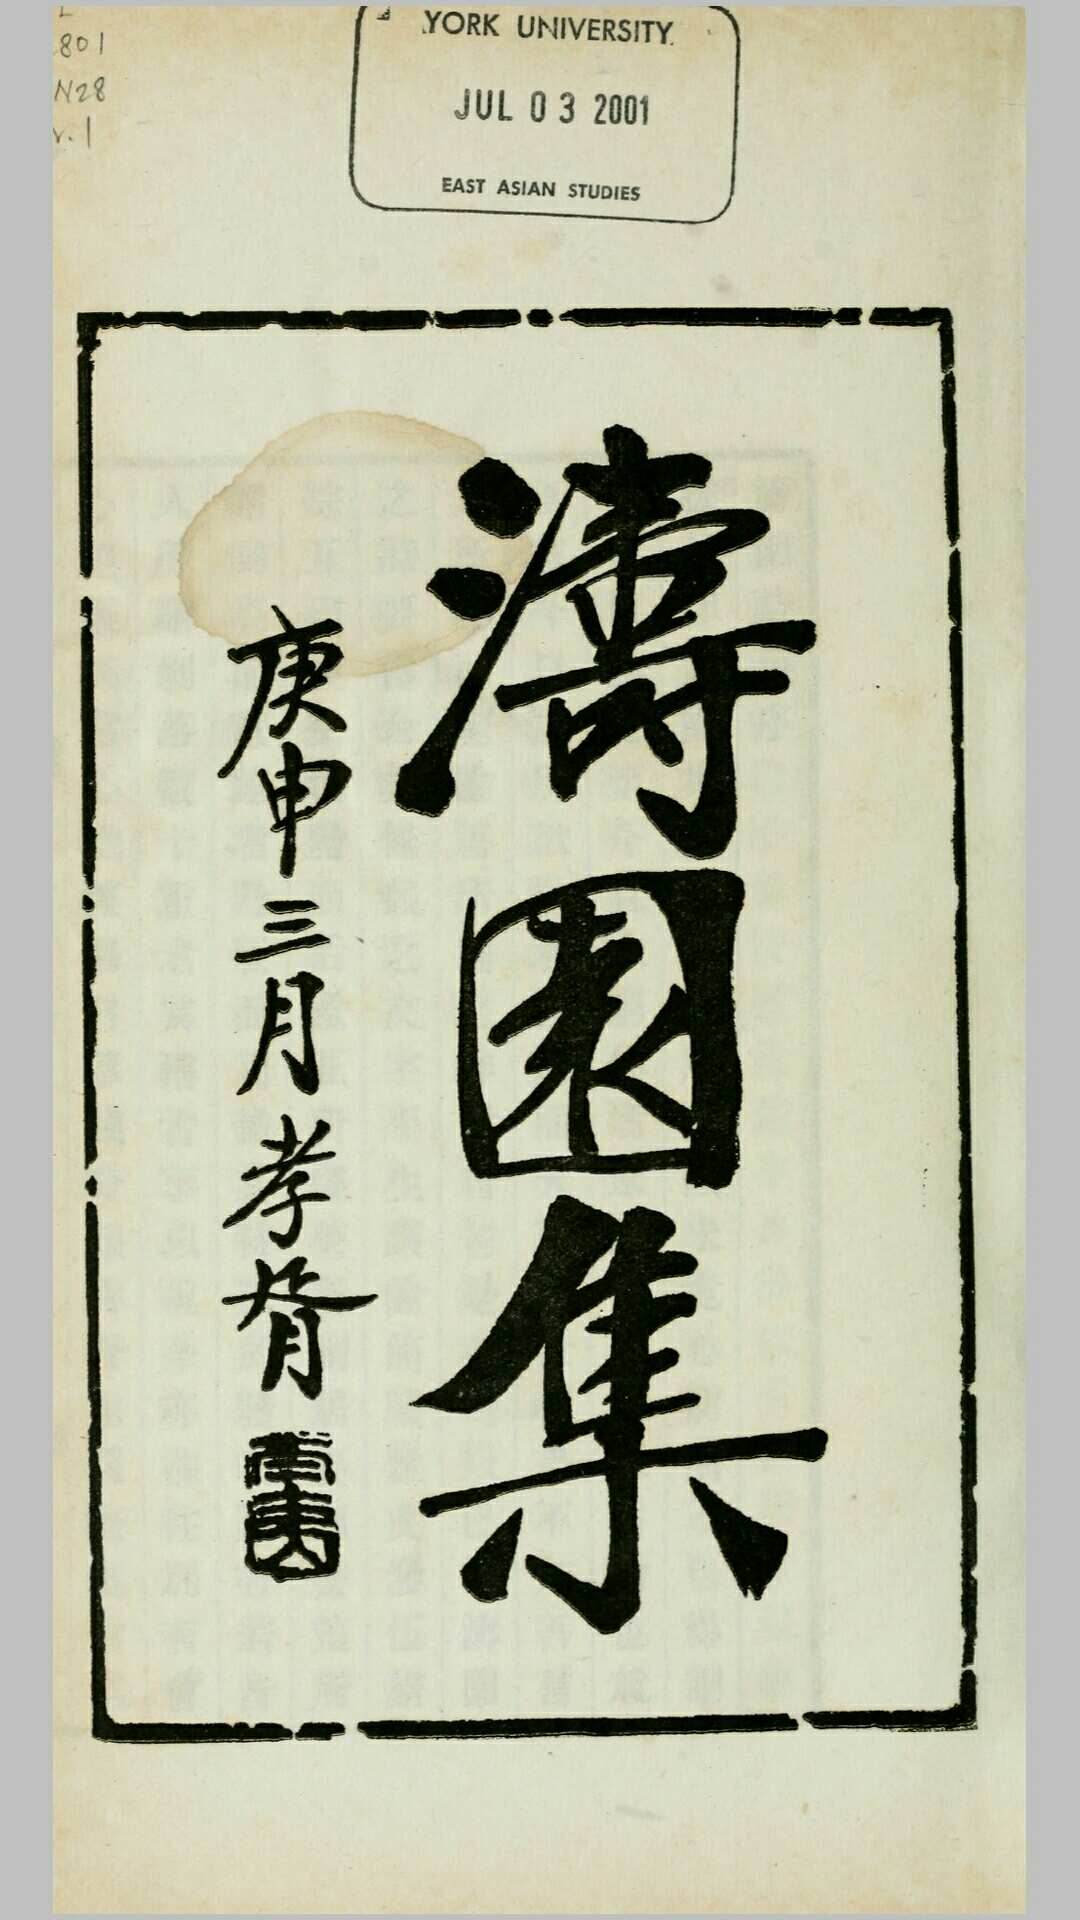 801
N28
v.1
YORK UNIVERSITY
JUL 03 2001
EAST ASIAN STUDIES
濤園集
庚申三月孝胥